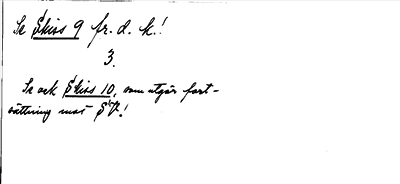 Se Skiss 9 fr. d. k.!
3.
Se ock Skiss 10, som utgör fort-
sättning mot SV!